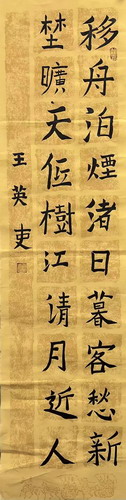 移舟泊煙渚日暮客愁新
埜曠天低樹江清月近人
王英吏